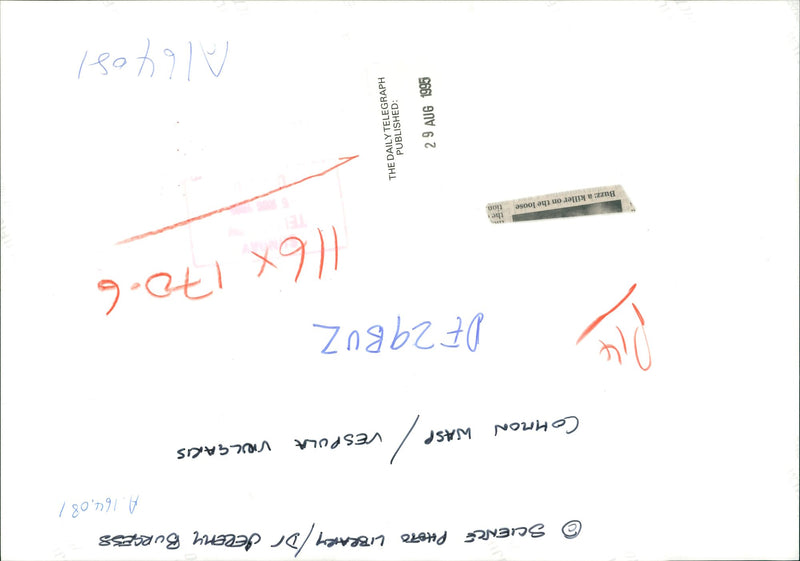 © SCIENCE PHOTO LIBRARY/Dr JEREMY BURGESS
A.164,081
COMMON WASP / VESPULA VULGARIS
DF29BUZ
116 x 170.6
Buzz: a killer on the loose
the
tion
THE DAILY TELEGRAPH
PUBLISHED:
29 AUG 1995
A164081